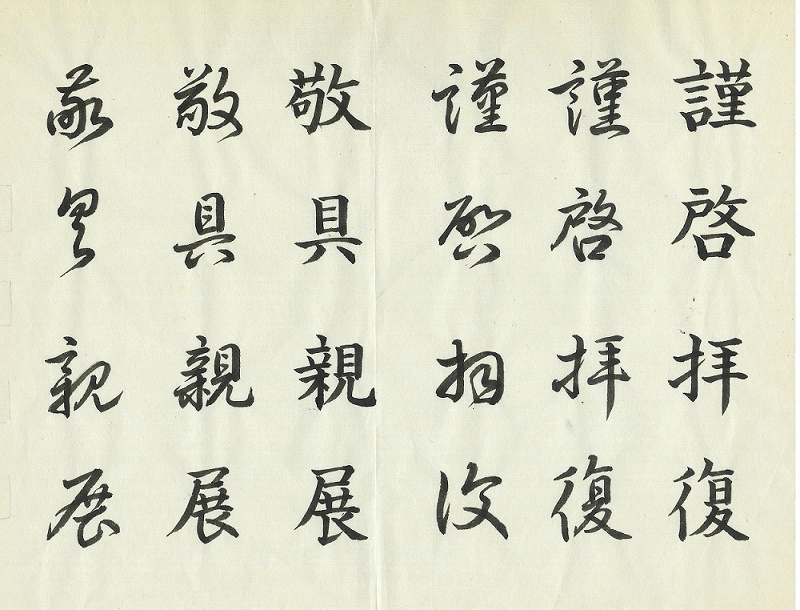 謹啓拝復
謹啓拝復
謹啓拝復
敬具親展
敬具親展
敬具親展